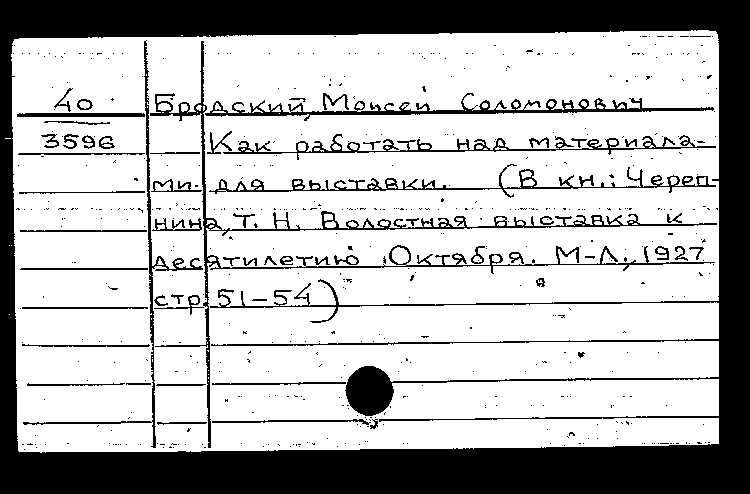 40 Бродский, Моисей Соломонович
3596 Как работать над материала-
ми для выставки. (В кн.: Череп-
нина, Т. Н. Волостная выставка к
десятилетию Октября. М-Л., 1927
стр. 51-54)